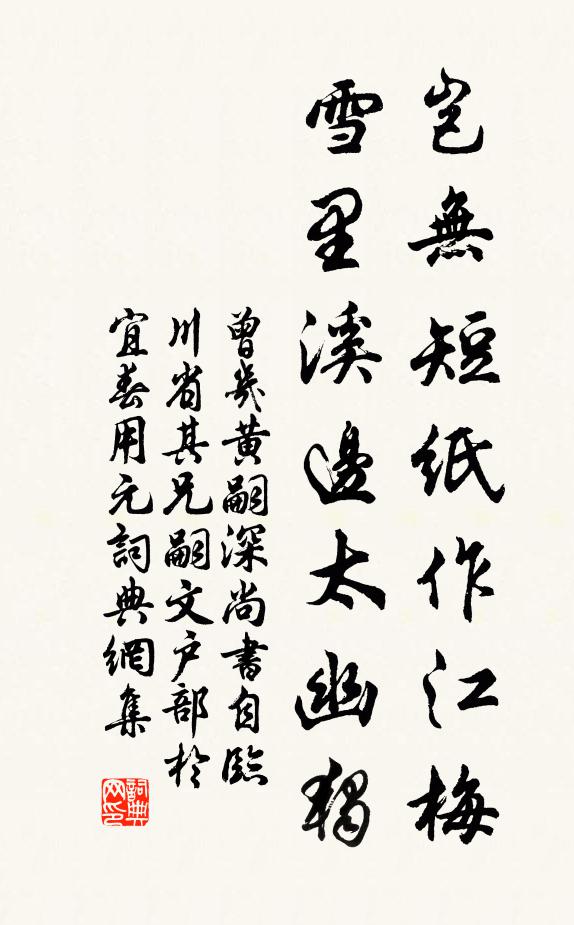 豈無短紙作江梅
雪里溪邊太幽獨
曾幾黃嗣深尚書自臨
川省其兄嗣文户部於
宜春用元詞典網集
詞典网印